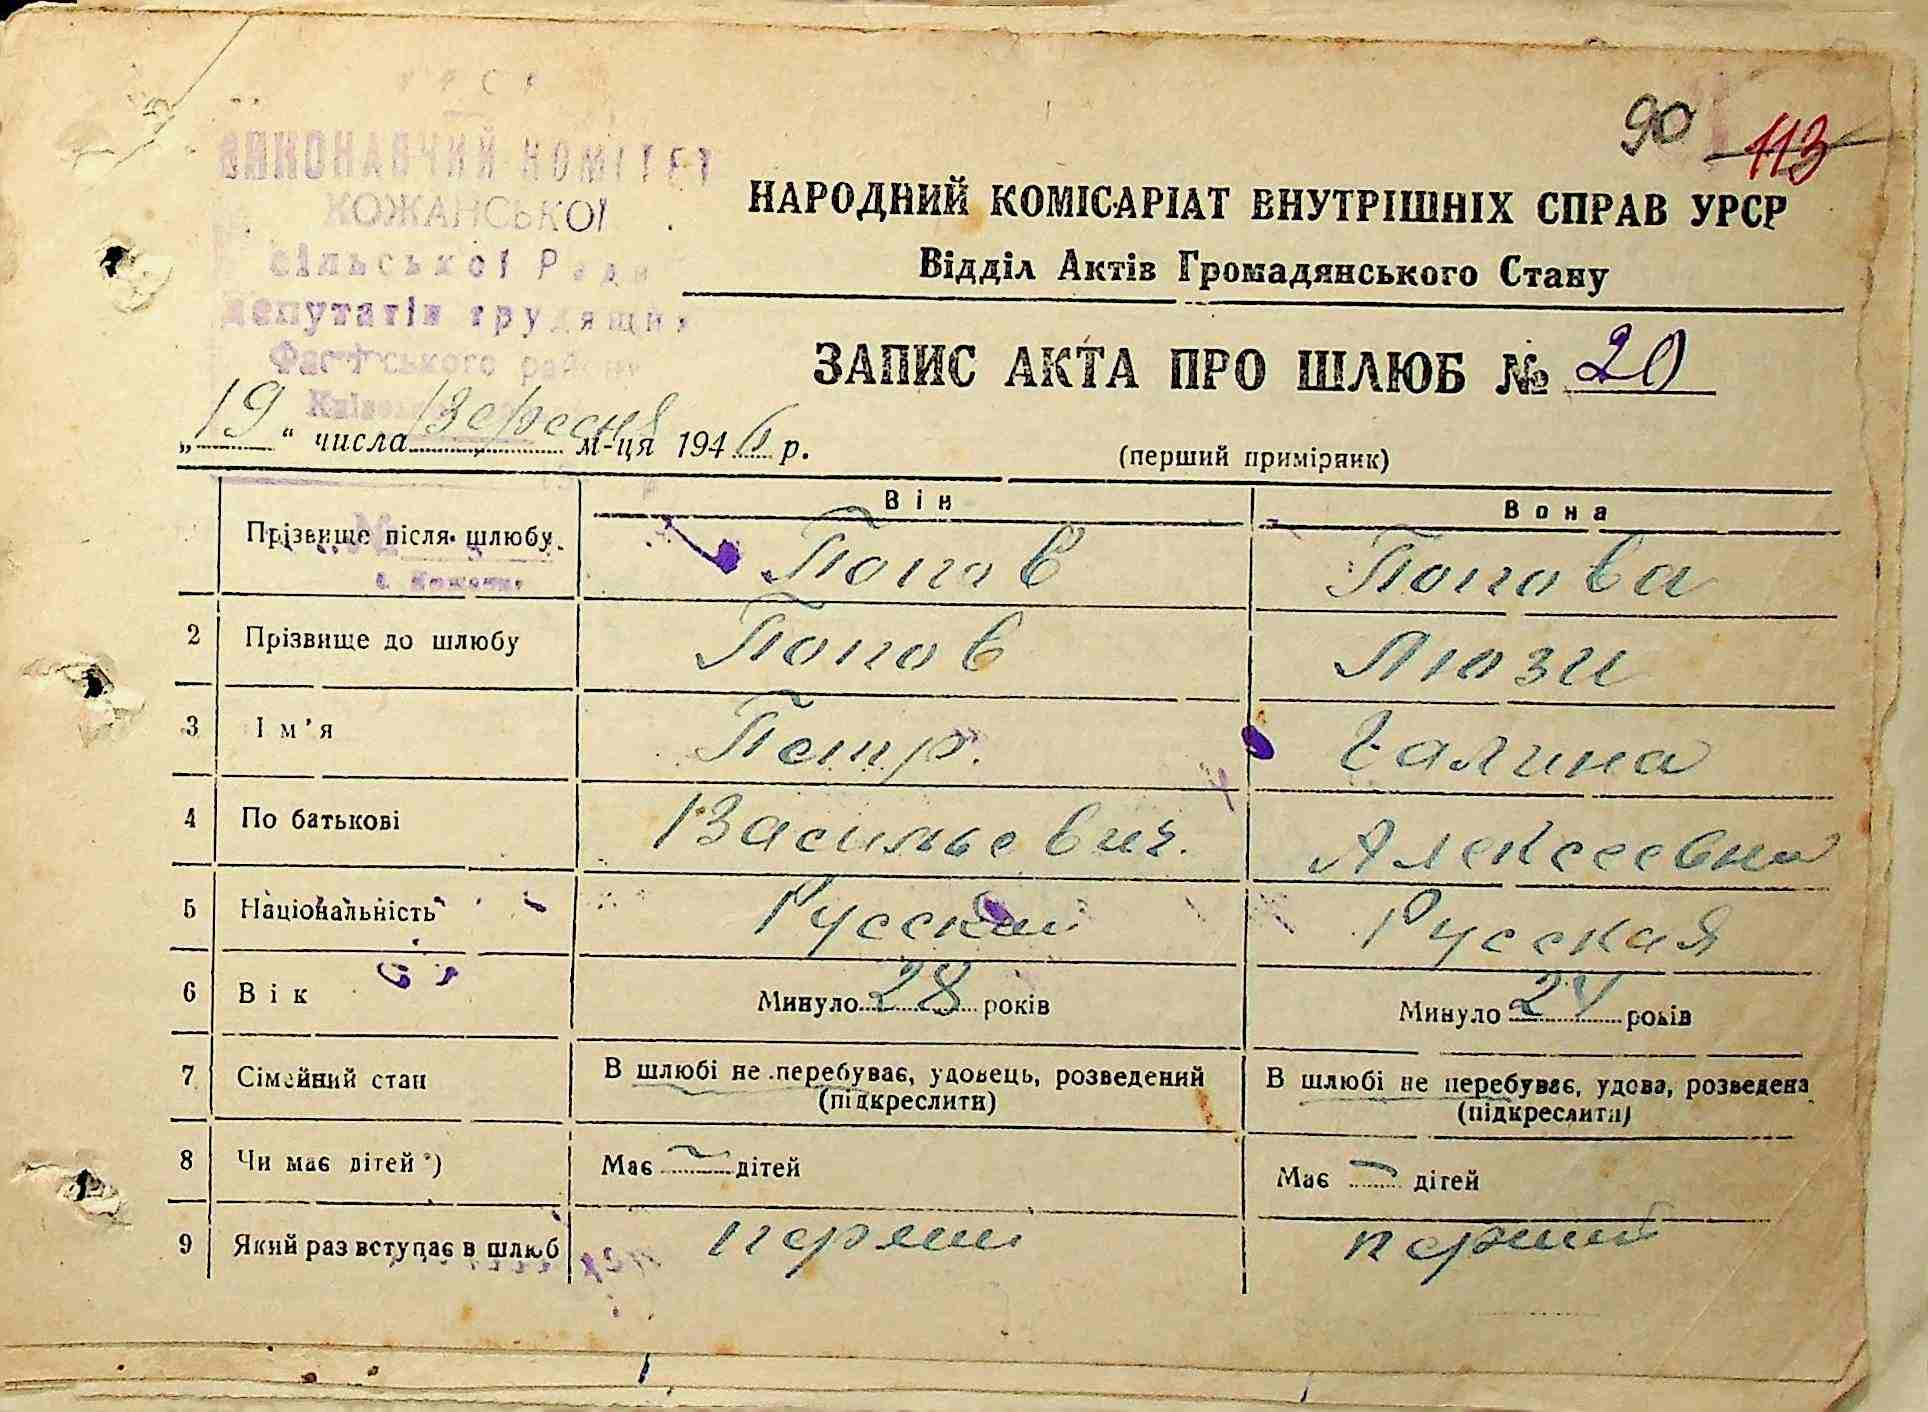 90 113
ВИКОНАВЧИЙ КОМІТЕТ
КОЖАНСЬКОЇ
сільської Ради
депутатів трудящих
Фастівського району
НАРОДНИЙ КОМІСАРІАТ ВНУТРІШНІХ СПРАВ УРСР
Відділ Актів Громадянського Стану
ЗАПИС АКТА ПРО ШЛЮБ № 20
„19“ числа Вересня м-ця 1946 р.
(перший примірник)
Він Вона
Прізвище після шлюбу Попов Попова
2 Прізвище до шлюбу Попов Люзи
3 Ім'я Петр. Галина
4 По батькові Васильевич. Алексеевна
5 Національність Русский Русская
6 Вік Минуло 28 років Минуло 24 років
7 Сімейний стан В шлюбі не перебуває, удовець, розведений (підкреслити) В шлюбі не перебуває, удова, розведена (підкреслити)
8 Чи має дітей *) Має — дітей Має — дітей
9 Який раз вступає в шлюб перши перший